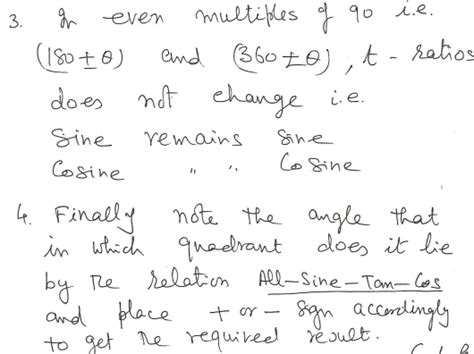 3. In even multiples of 90 i.e.
(180 ± θ) and (360 ± θ), t - ratios
does not change i.e.
Sine remains Sine
Cosine " " Cosine
4. Finally note the angle that
in which quadrant does it lie
by the relation All-Sine-Tan-Cos
and place + or - sign accordingly
to get the required result.